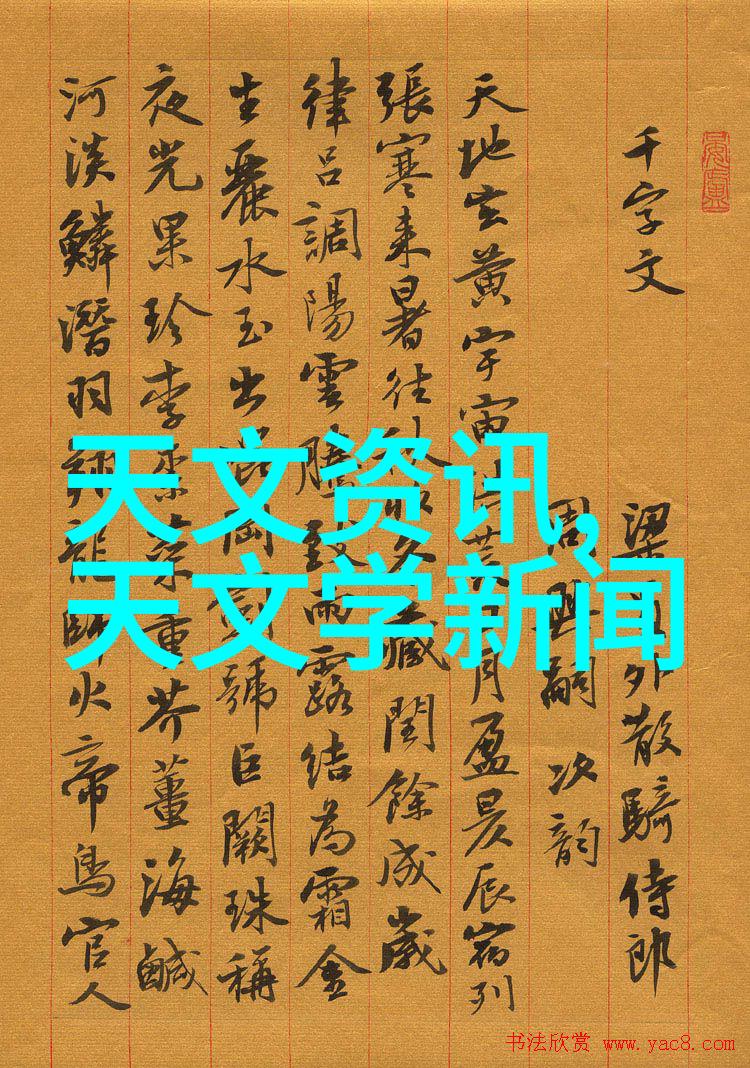 千字文
梁員外散騎侍郎
周興嗣次韵
天地玄黄宇宙洪荒日月盈昃辰宿列
張寒来暑往秋收冬藏閏餘成歲
律吕調陽雲騰致雨露結為霜金
生麗水玉出崑岡劍號巨闕珠稱
夜光果珍李柰菜重芥薑海鹹
河淡鱗潛羽翔龍師火帝鳥官人
天文资讯,
天文学新闻
书法欣赏 www.yac8.com